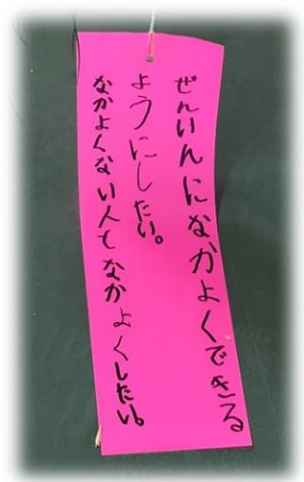 ぜんいんになかよくできる
ようにしたい。
なかよくない人てなかよくしたい。